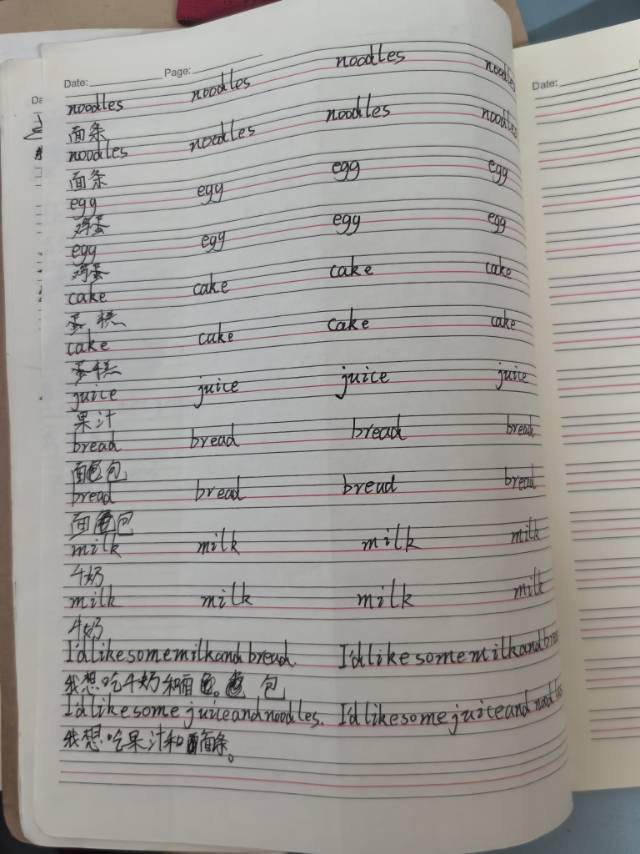 Date: Page:
noodles noodles noodles noodles
面条
noodles noodles noodles noodles
面条
egg egg egg egg
鸡蛋
egg egg egg egg
鸡蛋
cake cake cake cake
蛋糕
cake cake cake cake
蛋糕
juice juice juice juice
果汁
bread bread bread bread
面包
bread bread bread bread
面包
milk milk milk milk
牛奶
milk milk milk milk
牛奶
I'd like some milk and bread. I'd like some milk and brea
我想吃牛奶和面包
I'd like some juice and noodles. I'd like some juice and noodles
我想吃果汁和面条。
Date: